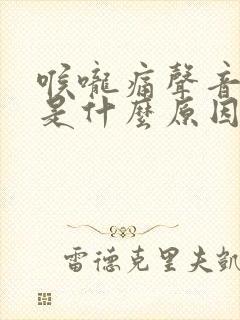 喉嚨痛聲音
是什麼原因
雷德克里夫凱